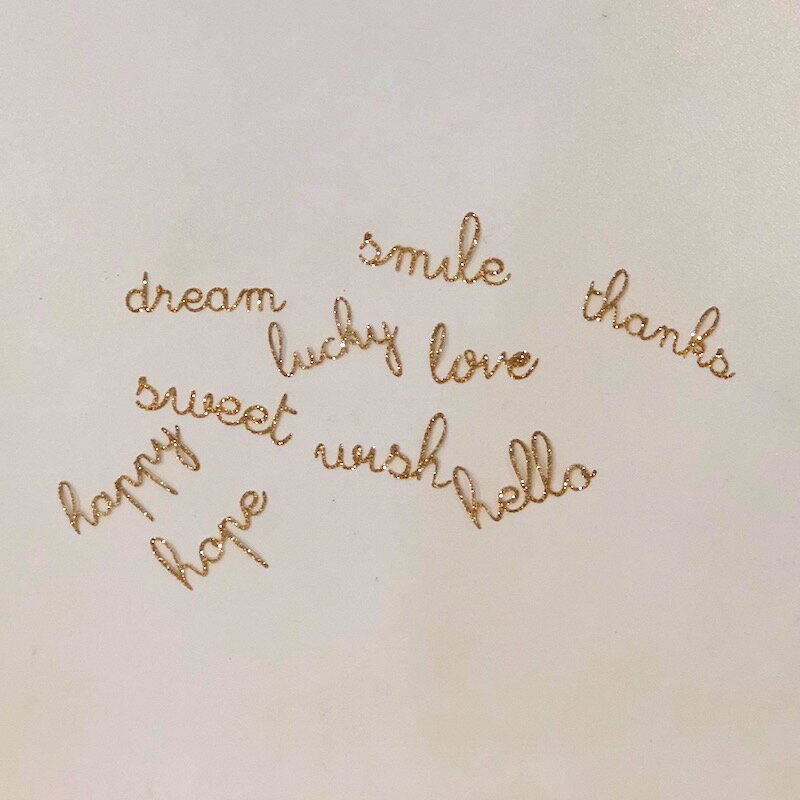 smile
dream
thanks
lucky
love
sweet
wish
hello
happy
hope